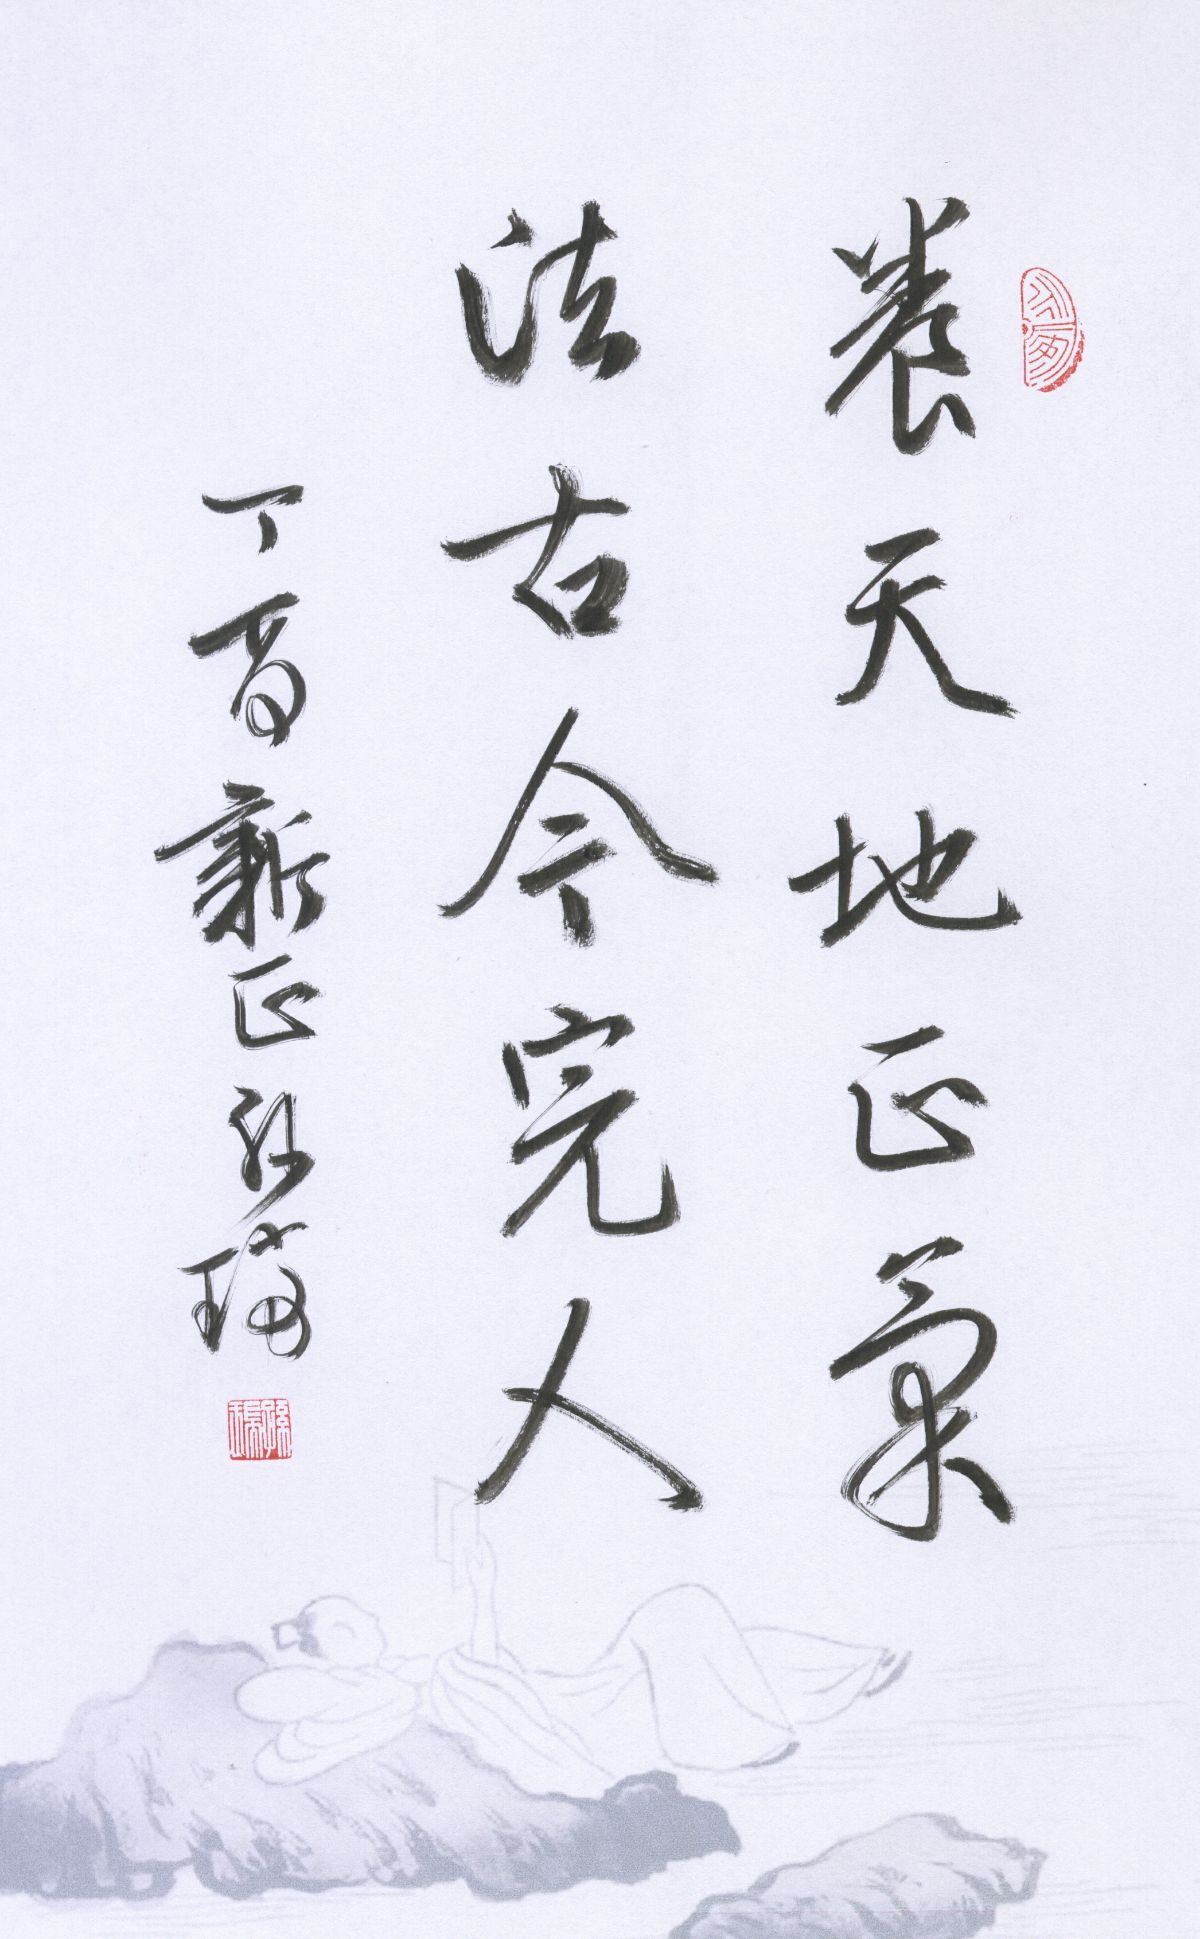 養天地正氣
法古今完人
丁酉新正